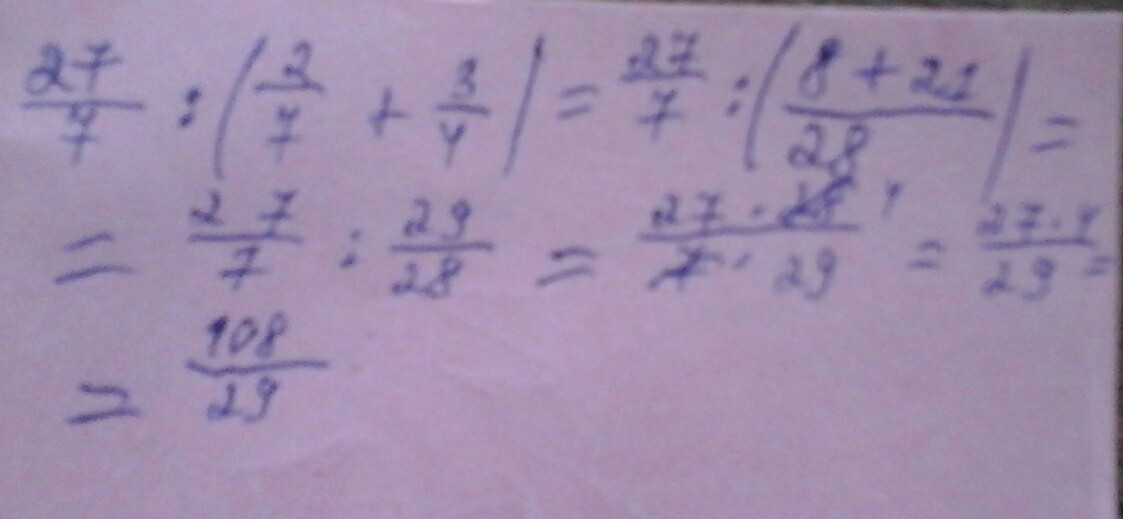 27/7 : (2/7 + 3/4) = 27/7 : (8 + 21/28) =
= 27/7 : 29/28 = 27 · 28 4/7 · 29 = 27 · 4/29 =
= 108/29